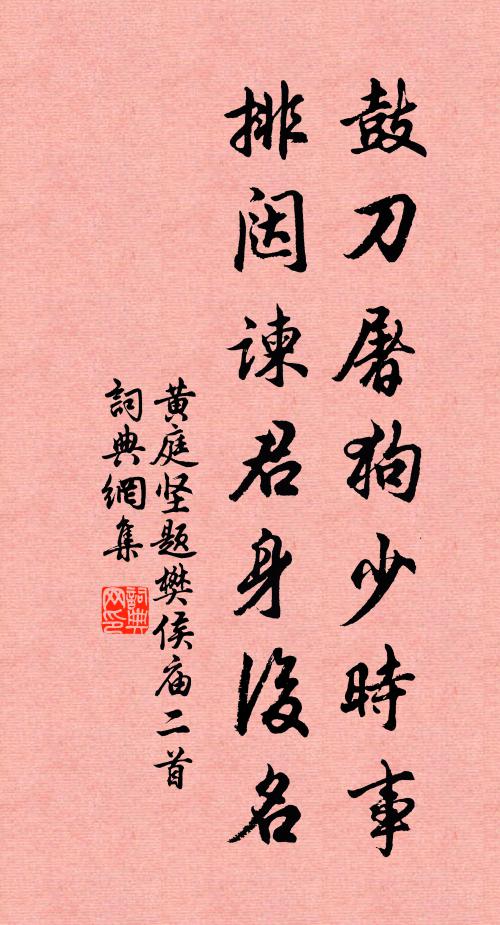 鼓刀屠狗少時事
排闼諫君身後名
黄庭坚题樊侯庙二首
詞典網集
詞典网印